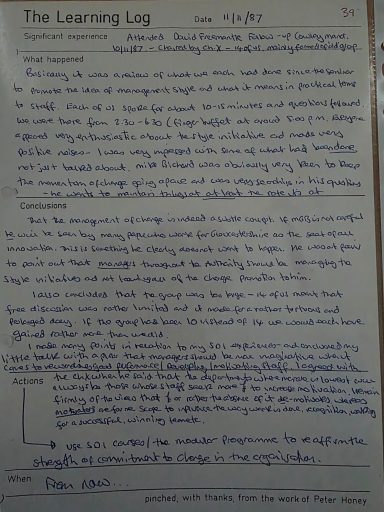 39
The Learning Log Date 11/11/87
Significant experience Attended David Freemantle Follow-up Cowley manor.
10/11/87 - chaired by Ch.X - 14 of us, mainly
What happened
Basically it was a review of what we each had done since the seminar
to promote the idea of management style and what it means in practical terms
to staff. Each of us spoke for about 10-15 minutes and questions followed.
We were there from 2.30 - 6.30 (finger buffet at around 5.00 p.m. Everyone
appeared very enthusiastic about the style initiative and made very
positive noises - I was very impressed with some of what had been done
not just talked about. Mike Bichard was obviously very keen to keep
the momentum of change going apace and was very searching in his questions
- he wants to maintain things at at least the rate up at
Conclusions
That the management of change is indeed a subtle concept. If MGB is not careful
he will be seen by many people who work for Gloucestershire as the seat of all
innovation. This is something he clearly does not want to happen. He was at pains
to point out that managers throughout the Authority should be managing to
style initiatives and not
I also concluded that the group was too large - 14 of us meant that
free discussion was rather limited and it made for a rather tortuous and
prolonged day. If the group had been 10 instead of 14 we would each have
gained rather more than we did.
I made many points in relation to my SO1 experiences and enclosed my
little talk with a plea that managers should be more imaginative when it
comes to rewarding good performance/developing/motivating staff. I agreed with
Actions the chex when he said that the department
always be those whose staff to increase motivation. I remain
firmly of the view that or rather the absence of it de-motivates whereas
motivators are more scope to influence the way work is done, recognition working
for a successful, winning team etc.
→ use SO1 courses/the modular programme to reaffirm the
strength of commitment to change in the organisation.
When From now...
pinched, with thanks, from the work of Peter Honey